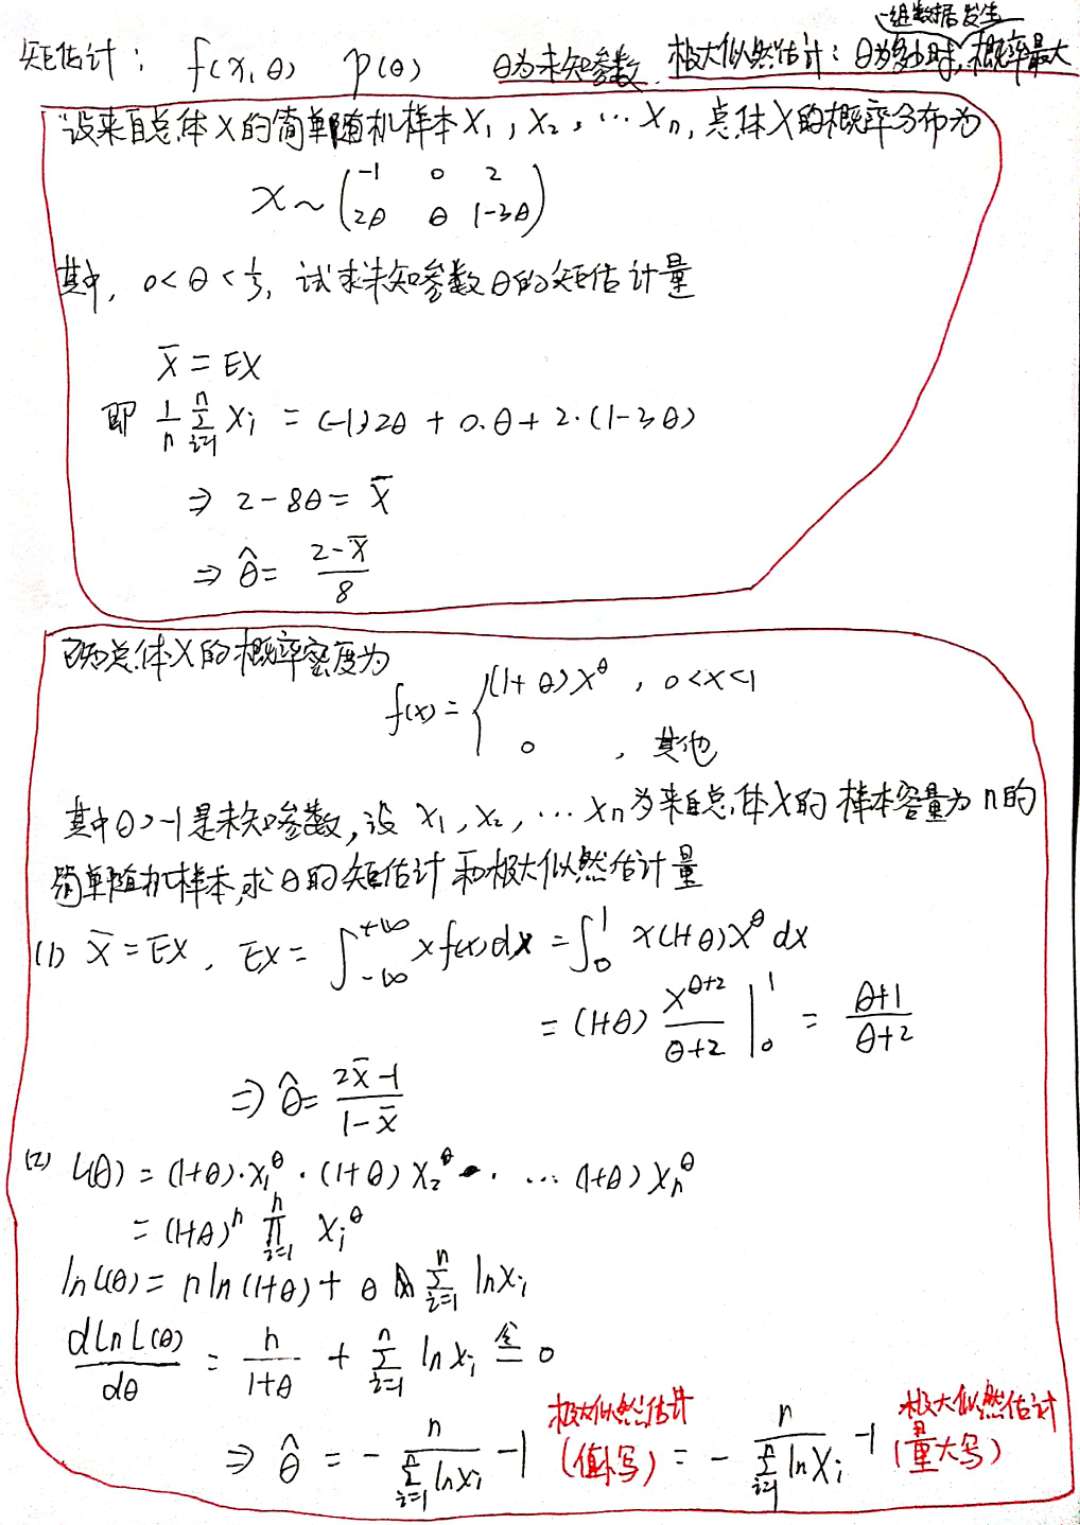 一组数据发生
矩估计： f(x,θ) P(θ) θ为未知参数. 极大似然估计：θ为多少时，概率最大
设来自总体X的简单随机样本X₁, X₂, … Xₙ, 总体X的概率分布为
X ~ ( -1 0 2
2θ θ 1-3θ )
其中, 0<θ<1/3, 试求未知参数θ的矩估计量
X̄ = EX
即 1/n Σᵢ₌₁ⁿ Xᵢ = (-1)2θ + 0·θ + 2·(1-3θ)
⇒ 2-8θ = X̄
⇒ θ̂ = (2-X̄)/8
已知总体X的概率密度为
f(x) = { (1+θ)x^θ , 0<x<1
0 , 其他
其中θ>-1是未知参数, 设 X₁, X₂, … Xn为来自总体X的样本容量为n的
简单随机样本,求θ的矩估计和极大似然估计量
(1) X̄ = EX , EX = ∫₋∞^+∞ x f(x) dx = ∫₀¹ x(1+θ)x^θ dx
= (1+θ) x^(θ+2)/(θ+2) |₀¹ = (θ+1)/(θ+2)
⇒ θ̂ = (2X̄-1)/(1-X̄)
(2) L(θ) = (1+θ)·x₁^θ · (1+θ) x₂^θ · … (1+θ) xₙ^θ
= (1+θ)ⁿ ∏ᵢ₌₁ⁿ xᵢ^θ
ln L(θ) = n ln(1+θ) + θ Σᵢ₌₁ⁿ ln xᵢ
d ln L(θ)/dθ = n/(1+θ) + Σᵢ₌₁ⁿ ln xᵢ 令= 0
⇒ θ̂ = - n/(Σᵢ₌₁ⁿ ln xᵢ) -1 极大似然估计(值小写) = - n/(Σᵢ₌₁ⁿ ln Xᵢ) -1 极大似然估计(量大写)